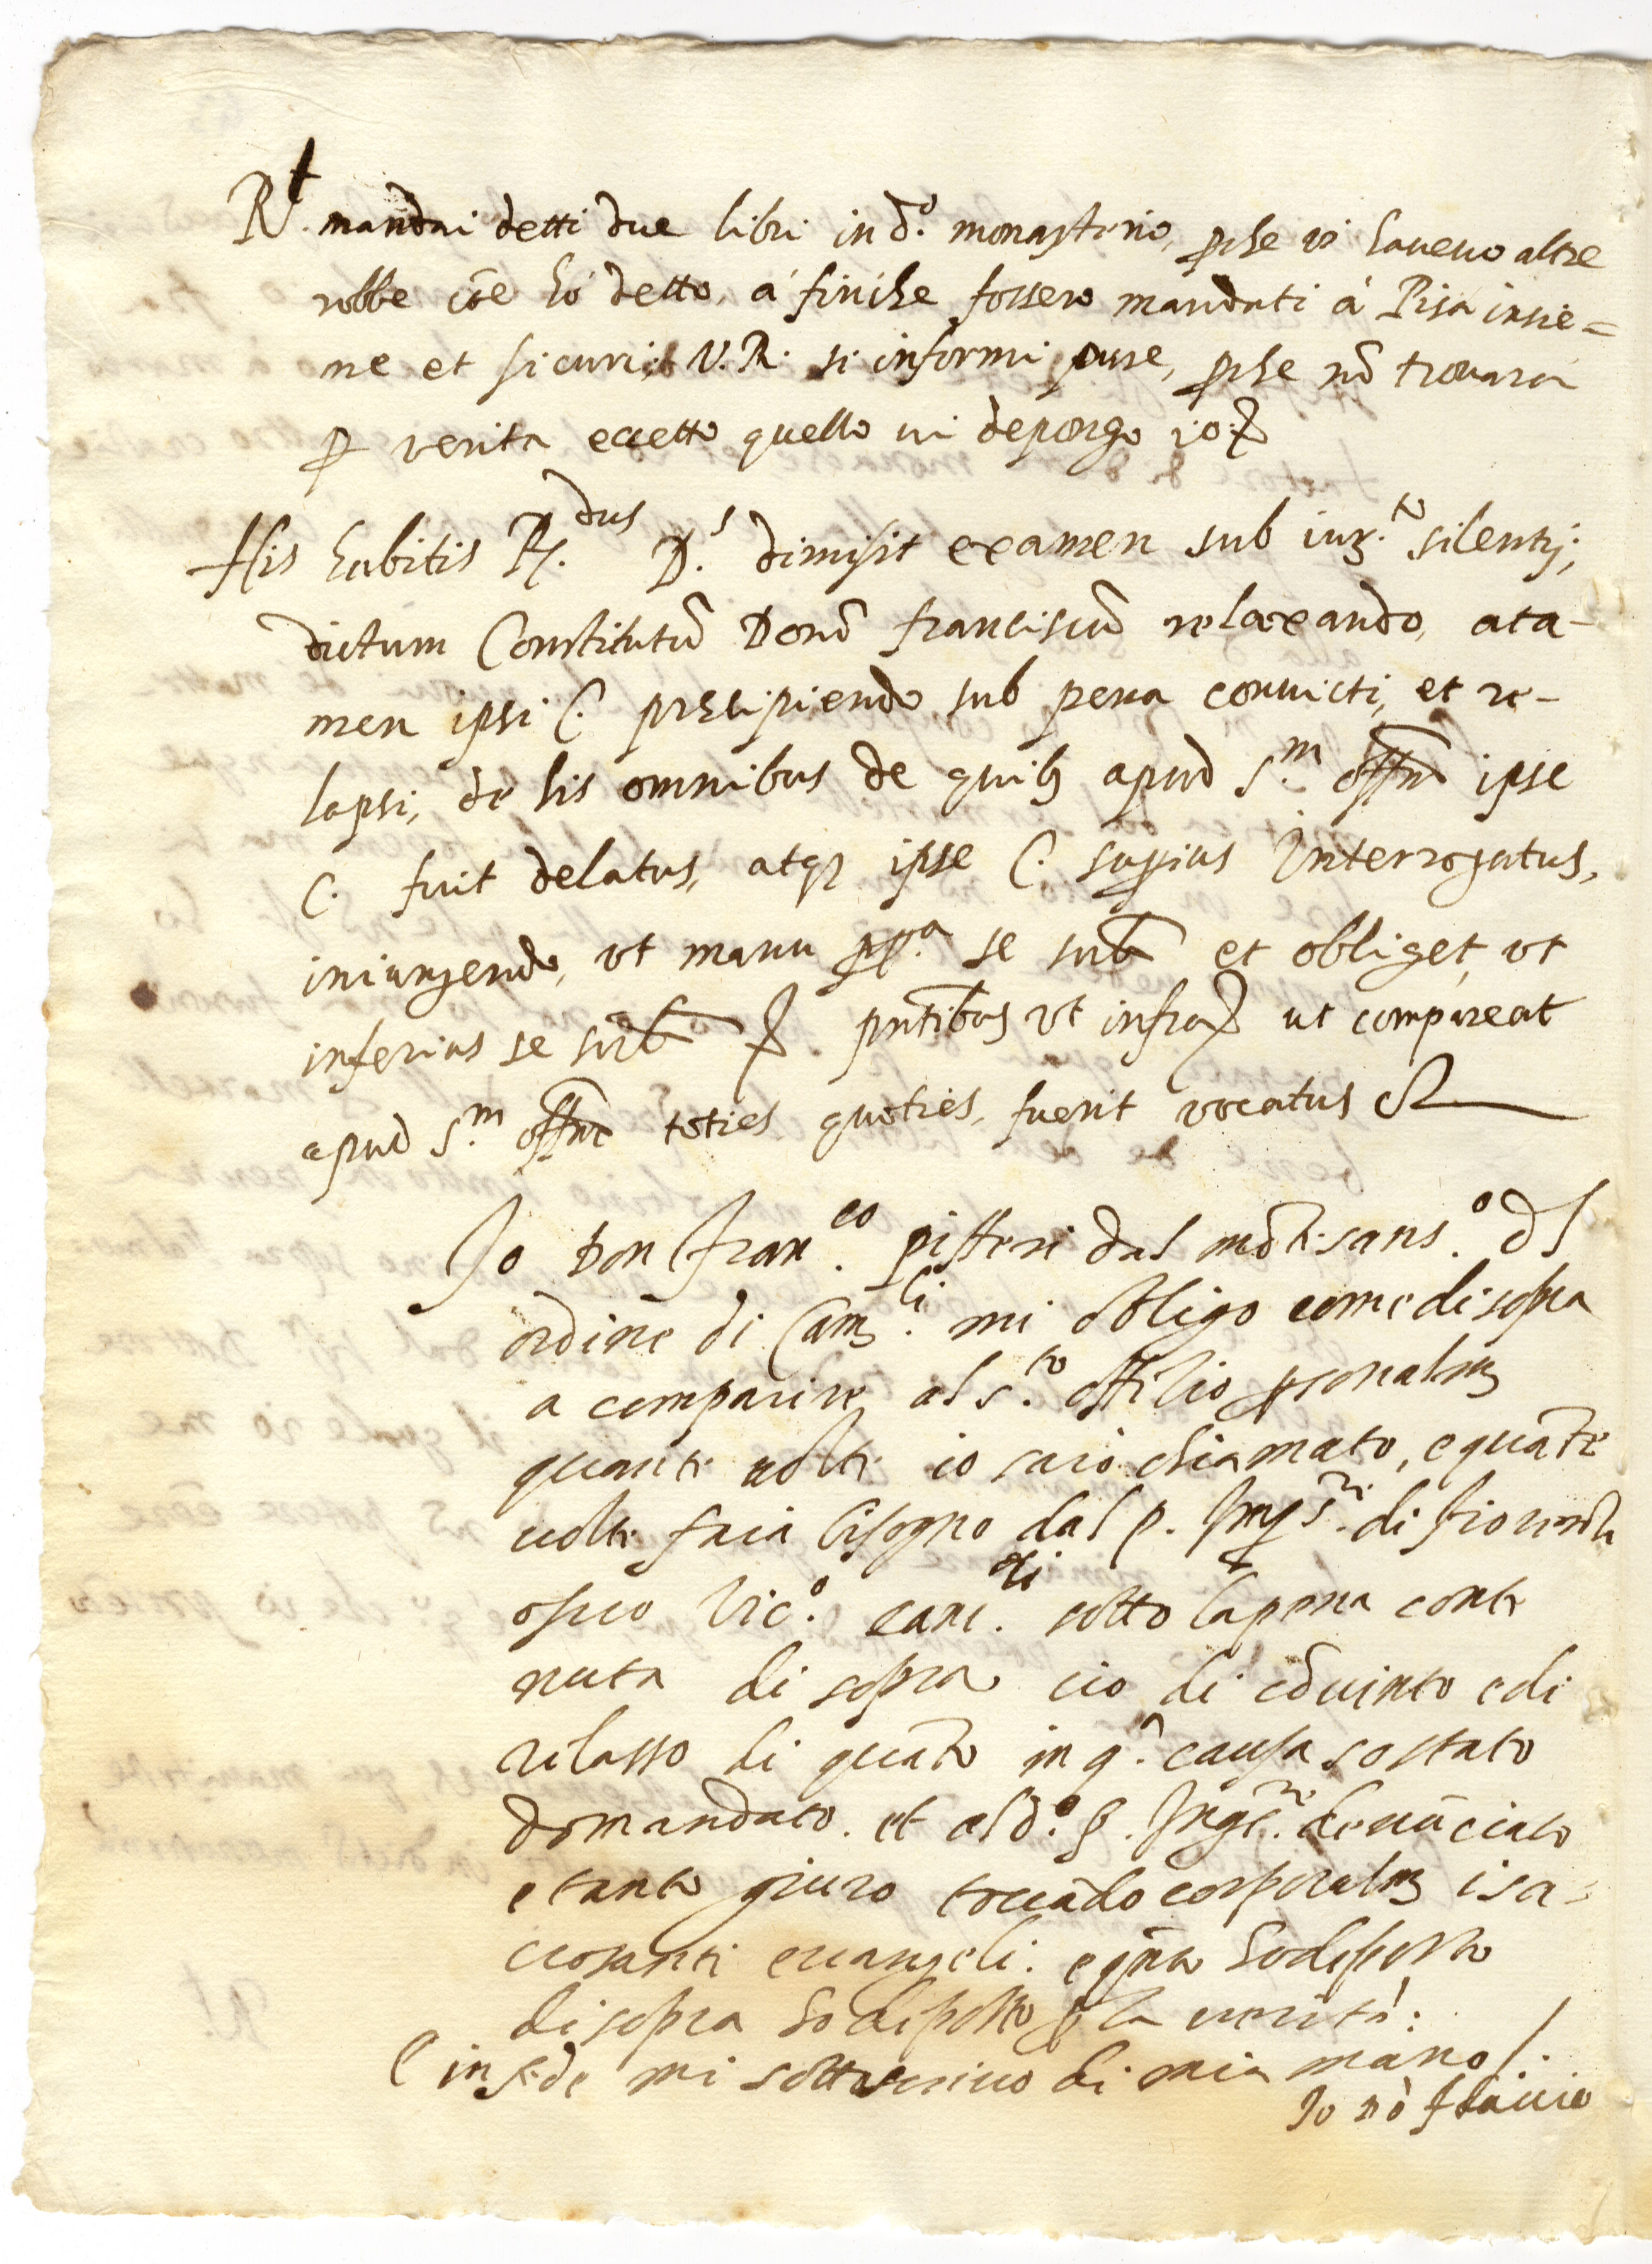 R.t mandai detti due libri in d.o monasterio, ꝑche vi haveuo altre
robbe cōe hò detto, à finche fossero mandati à Pisa insie=
me et sicuri; V.R. si informi pure, ꝑche nō trouara
ꝑ verita eccetto quello vi depongo io
His habitis R.dus D.s dimisit examen sub iur.to silentij;
dictum Constitutū Donū franciscū relaxando, ata-
men ipsi C. precipiendo sub pena conuicti, et re-
lapsi, de his omnibus de quibꝫ apud S.m offm ipse
C. fuit delatus, atqꝫ ipse C. supius Interrogatus,
iniungendo, vt manu ꝓp.a se sub et obliget, vt
inferius se sub & pntibus vt infra & ut compareat
apud S.m offm toties quoties, fuerit vocatus &
Io Don fran.co pifferi dal mōte sans.o dl
ordine di Cam.li mi obligo come di sopra
a comparire al s.to offitio ꝑsonalmꝫ
quante uolte io sarò chiamato, e quāte
uolte faia bisogno dal p. Inqs.re di fiorenza
o suo Vic.o sotto la pena conte
nuta di sopra cio di cōuinto e di
relasso di quāto in q.a causa so stato
domandato. et al d.o p. Inqs.re denūciato
e tanto giuro toccādo corporalmꝫ i sa=
crosanti euangeli. e qūto ho deposto
di sopra ho deposto ꝑ la uerità:
E in fede mi sottoscriuo di mia mano /.
Io Dō